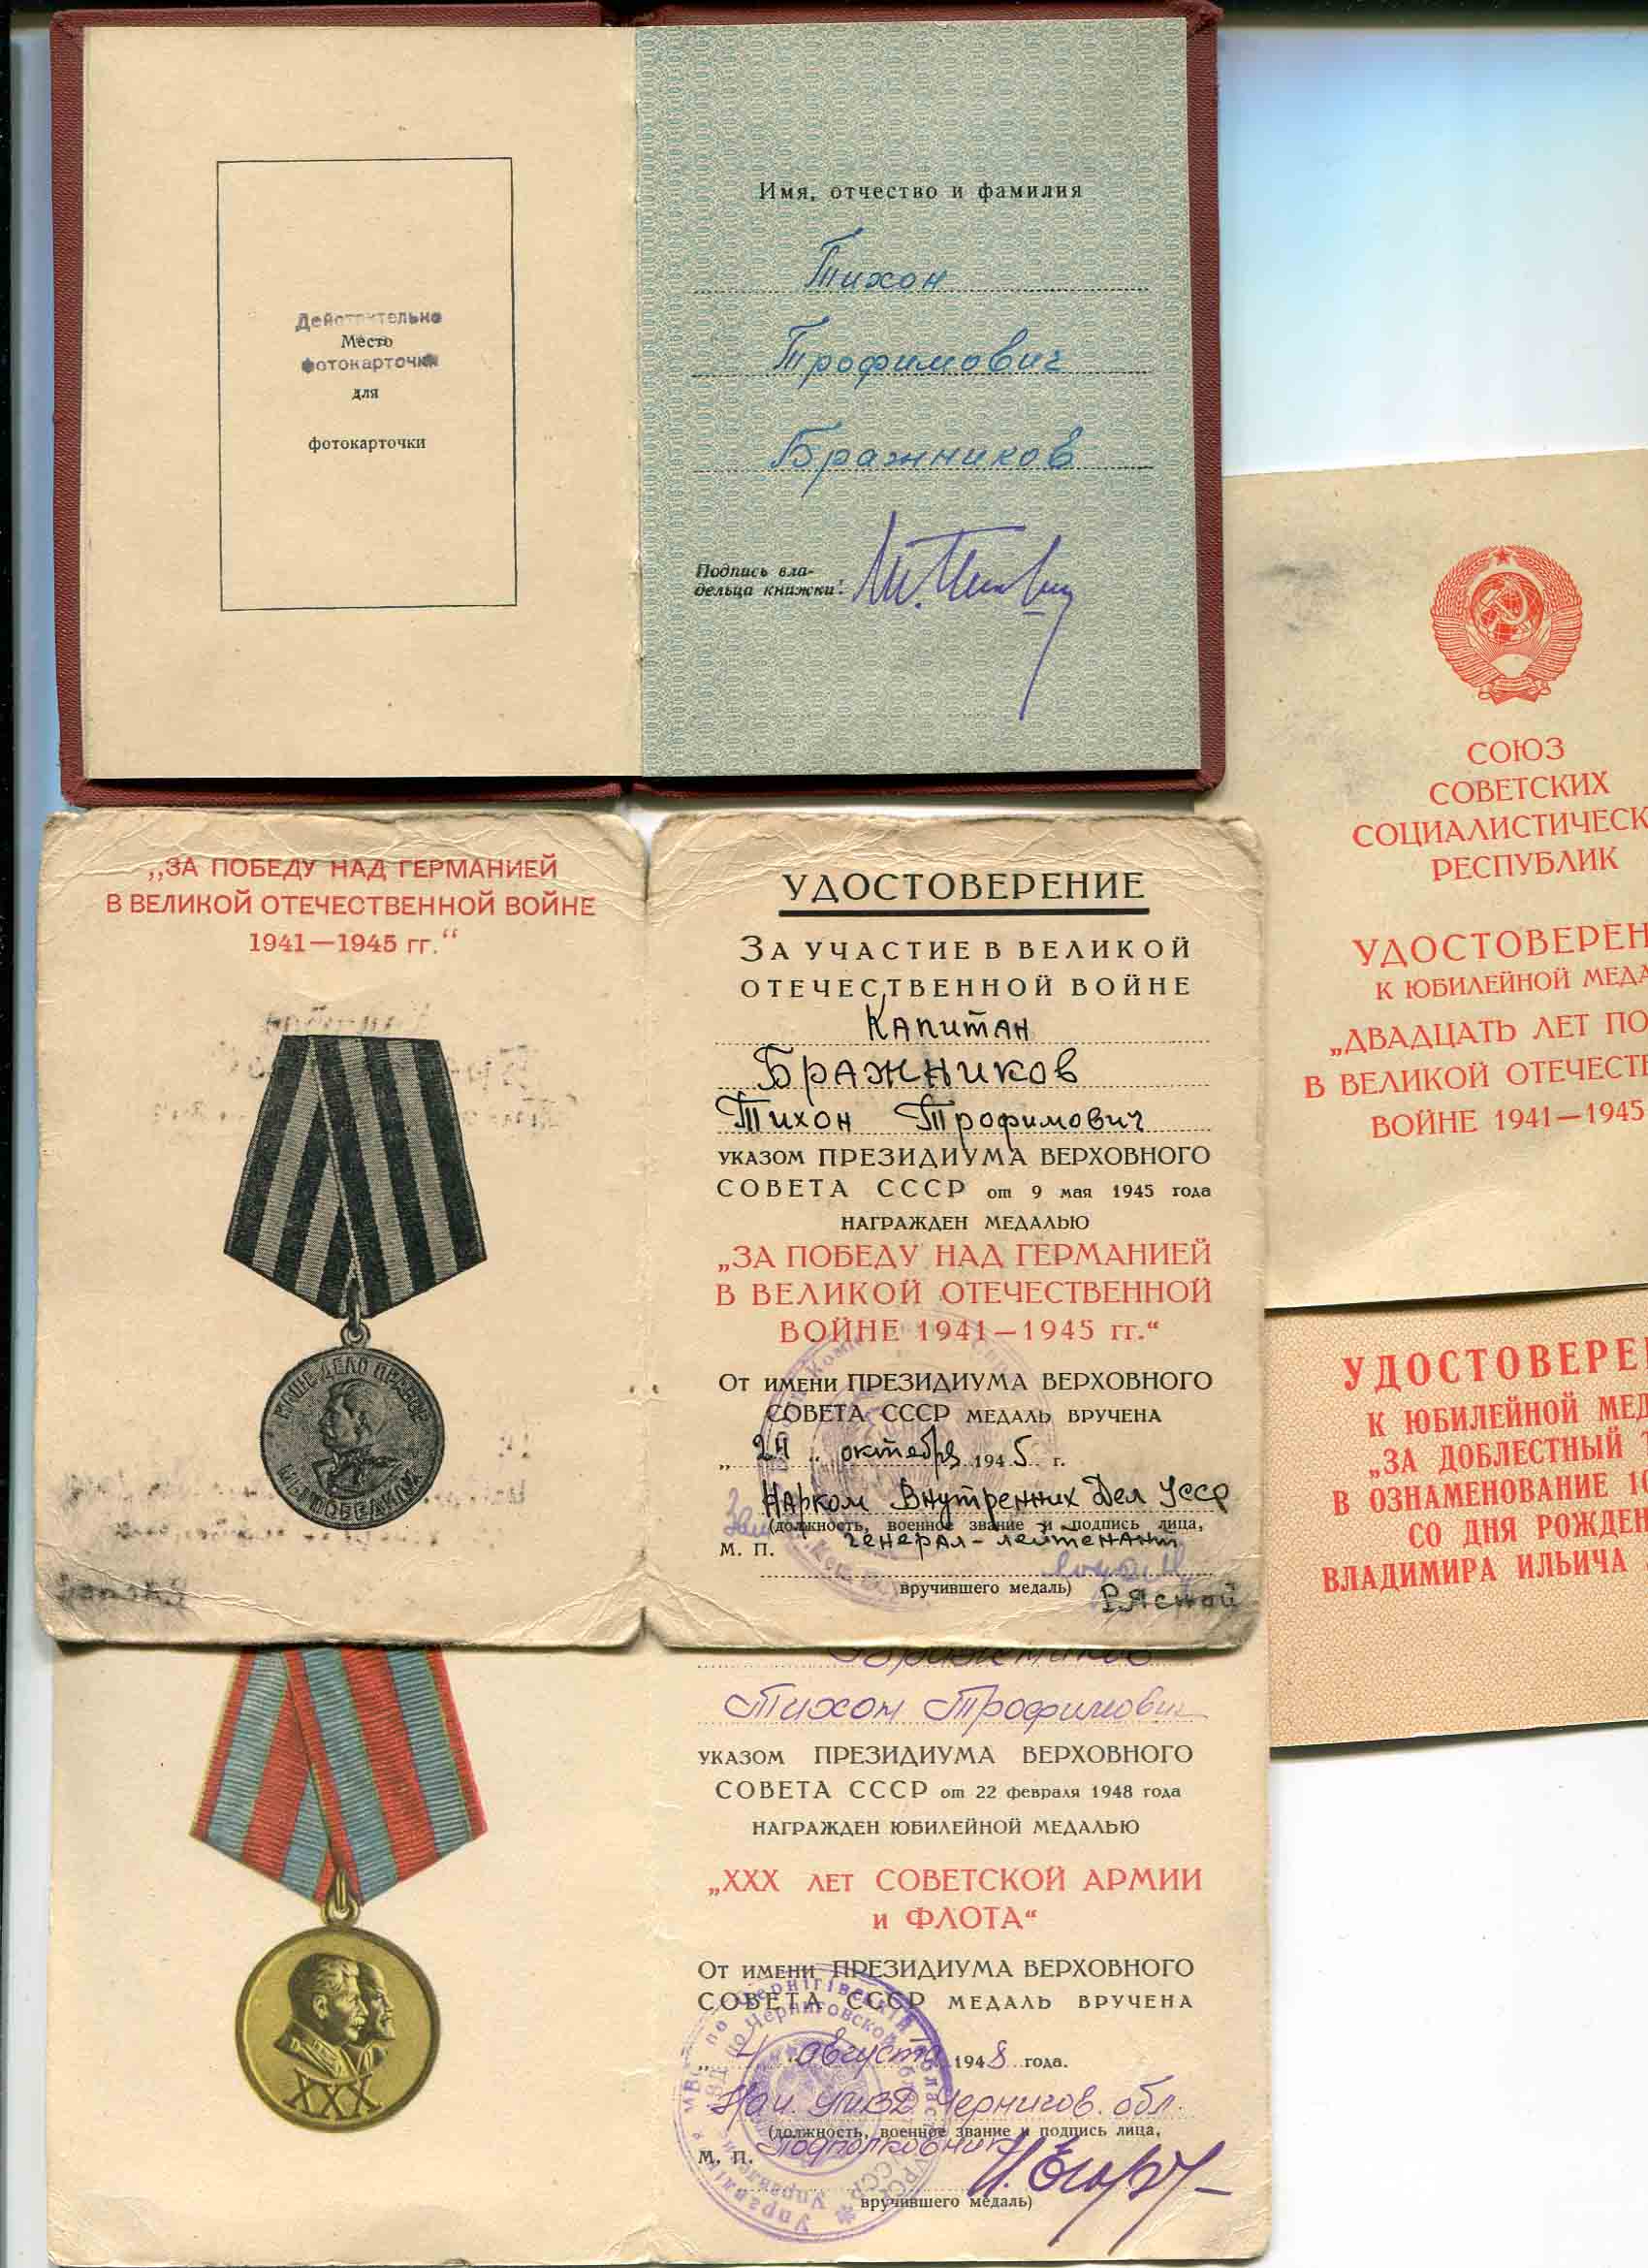 Действительно
Место
фотокарточки
для
фотокарточки
Имя, отчество и фамилия
Тихон
Трофимович
Бражников
Подпись вла-
дельца книжки:
СОЮЗ
СОВЕТСКИХ
СОЦИАЛИСТИЧЕСК
РЕСПУБЛИК
УДОСТОВЕРЕН
К ЮБИЛЕЙНОЙ МЕДА
„ДВАДЦАТЬ ЛЕТ ПО
В ВЕЛИКОЙ ОТЕЧЕСТВ
ВОЙНЕ 1941—1945
„ЗА ПОБЕДУ НАД ГЕРМАНИЕЙ
В ВЕЛИКОЙ ОТЕЧЕСТВЕННОЙ ВОЙНЕ
1941—1945 гг.“
НАШЕ ДЕЛО ПРАВОЕ
МЫ ПОБЕДИЛИ
УДОСТОВЕРЕНИЕ
ЗА УЧАСТИЕ В ВЕЛИКОЙ
ОТЕЧЕСТВЕННОЙ ВОЙНЕ
Капитан
Бражников
Тихон Трофимович
УКАЗОМ ПРЕЗИДИУМА ВЕРХОВНОГО
СОВЕТА СССР от 9 мая 1945 года
НАГРАЖДЕН МЕДАЛЬЮ
„ЗА ПОБЕДУ НАД ГЕРМАНИЕЙ
В ВЕЛИКОЙ ОТЕЧЕСТВЕННОЙ
ВОЙНЕ 1941—1945 гг.“
ОТ ИМЕНИ ПРЕЗИДИУМА ВЕРХОВНОГО
СОВЕТА СССР МЕДАЛЬ ВРУЧЕНА
„24„ октября 1945 г.
Нарком Внутренних Дел УССР
(должность, военное звание и подпись лица,
М. П. генерал-лейтенант
вручившего медаль) Рясной
УДОСТОВЕРЕ
К ЮБИЛЕЙНОЙ МЕД
„ЗА ДОБЛЕСТНЫЙ Т
В ОЗНАМЕНОВАНИЕ 10
СО ДНЯ РОЖДЕН
ВЛАДИМИРА ИЛЬИЧА
Бражников
Тихон Трофимович
УКАЗОМ ПРЕЗИДИУМА ВЕРХОВНОГО
СОВЕТА СССР от 22 февраля 1948 года
НАГРАЖДЕН ЮБИЛЕЙНОЙ МЕДАЛЬЮ
„XXX ЛЕТ СОВЕТСКОЙ АРМИИ
и ФЛОТА“
ОТ ИМЕНИ ПРЕЗИДИУМА ВЕРХОВНОГО
СОВЕТА СССР МЕДАЛЬ ВРУЧЕНА
„4„ августа 1948 года.
Нач. УМВД Чернигов. обл.
(должность, военное звание и подпись лица,
М. П. Подполковник
вручившего медаль)
XXX